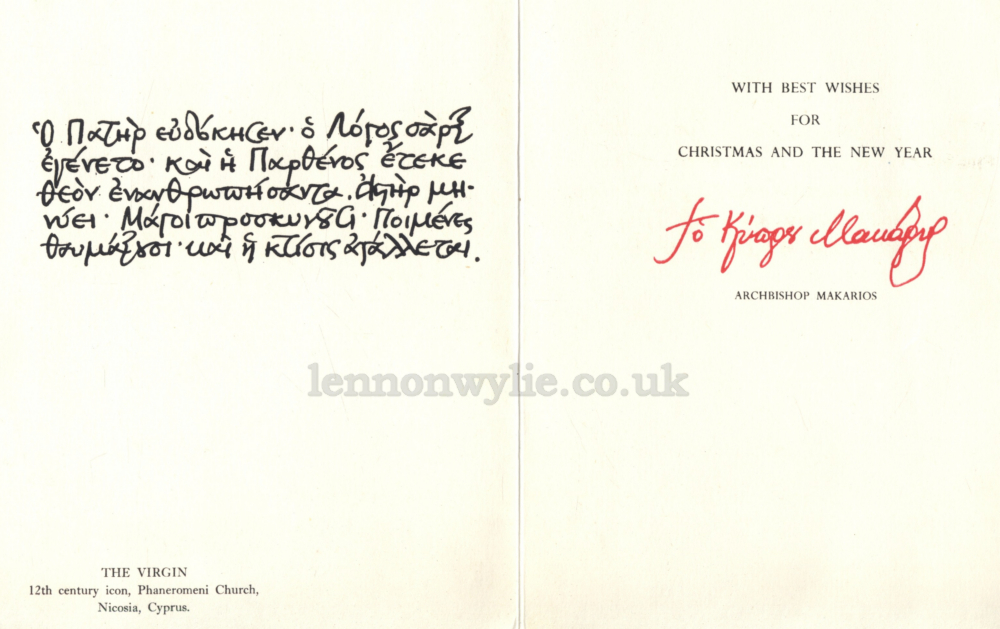 Ὁ Πατὴρ εὐδόκησεν· ὁ Λόγος σὰρξ
ἐγένετο· καὶ ἡ Παρθένος ἔτεκε
Θεὸν ἐνανθρωπήσαντα. Ἀστὴρ μη-
νύει· Μάγοι προσκυνοῦσι· Ποιμένες
θαυμάζουσι· καὶ ἡ κτίσις ἀγάλλεται.
THE VIRGIN
12th century icon, Phaneromeni Church,
Nicosia, Cyprus.
WITH BEST WISHES
FOR
CHRISTMAS AND THE NEW YEAR
ὁ Κύπρου Μακάριος
ARCHBISHOP MAKARIOS
lennonwylie.co.uk